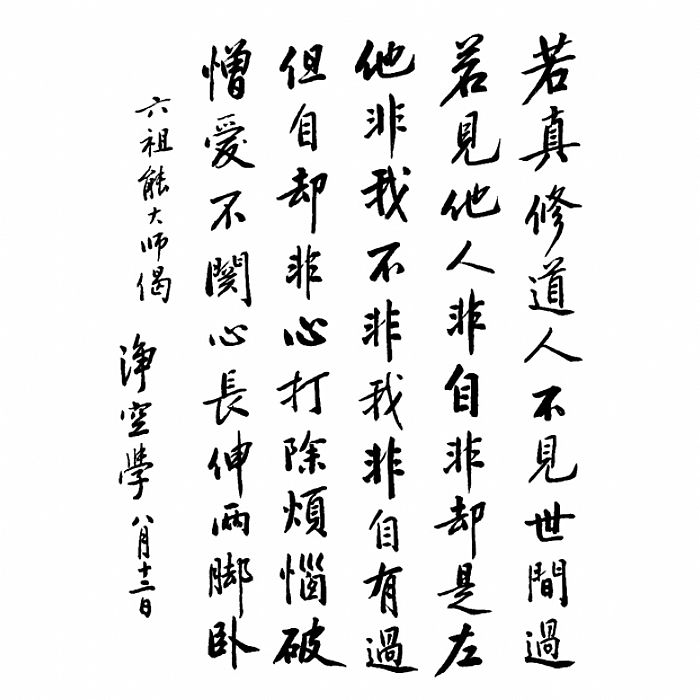 若真修道人不見世間過
若見他人非自非却是左
他非我不非我非自有過
但自却非心打除煩惱破
憎愛不関心長伸兩脚卧
六祖能大师偈
淨空學 八月十二日